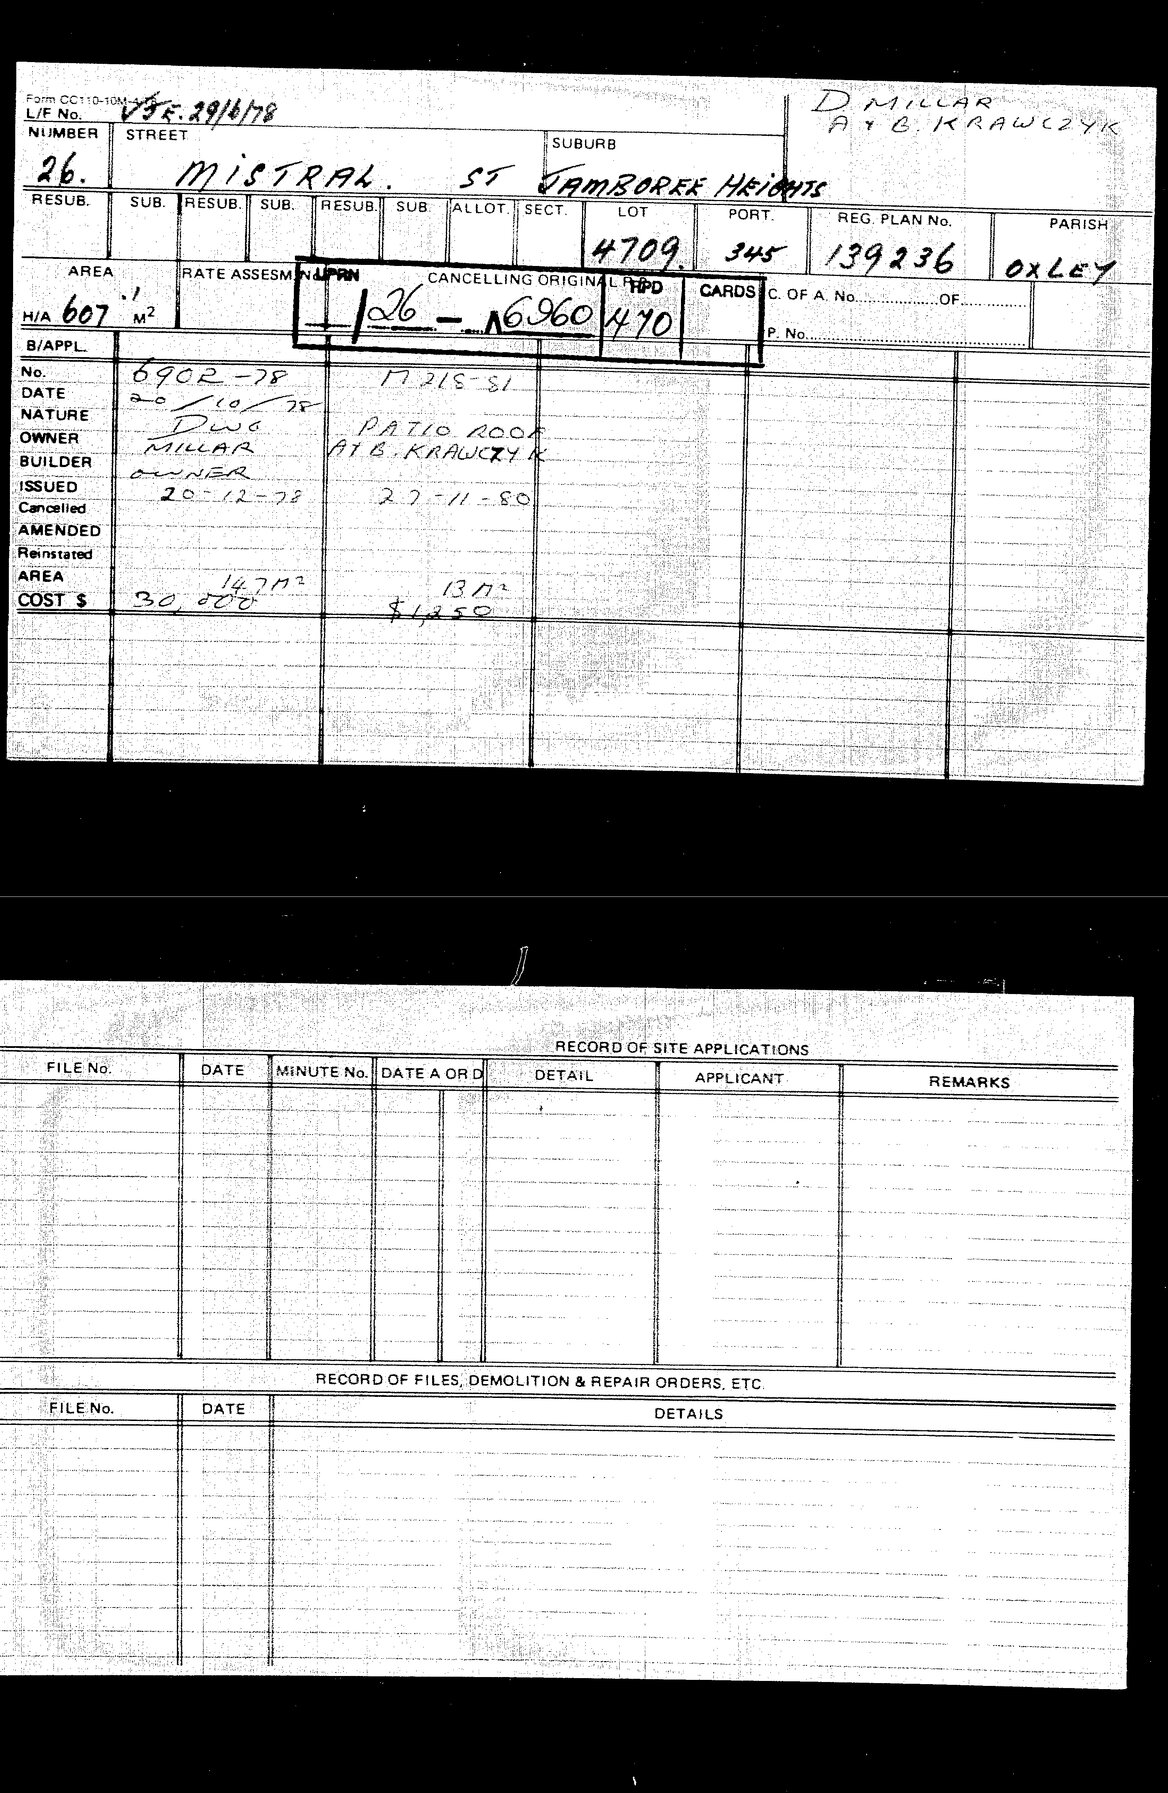 Form CC110-10M
L/F No. VJE. 29/6/78
D. MILLAR
A & B. KRAWCZYK
NUMBER STREET SUBURB
26. MISTRAL. ST JAMBOREE HEIGHTS
RESUB. SUB. RESUB. SUB. RESUB. SUB. ALLOT. SECT. LOT PORT. REG. PLAN No. PARISH
4709. 345 139236 OXLEY
AREA RATE ASSESM UPRN CANCELLING ORIGINAL RPD CARDS C. OF A. No. OF
H/A 607 M² /26 - 6960 470 P. No.
B/APPL.
No. 690R-78 M 218-81
DATE 20/10/78
NATURE DWG PATIO ROOF
OWNER MILLAR A & B. KRAWCZYK
BUILDER OWNER
ISSUED 20-12-78 27-11-80
Cancelled
AMENDED
Reinstated
AREA 147 M² 13 M²
COST $ 30,000 $1,250
RECORD OF SITE APPLICATIONS
FILE No. DATE MINUTE No. DATE A OR D DETAIL APPLICANT REMARKS
RECORD OF FILES, DEMOLITION & REPAIR ORDERS, ETC.
FILE No. DATE DETAILS